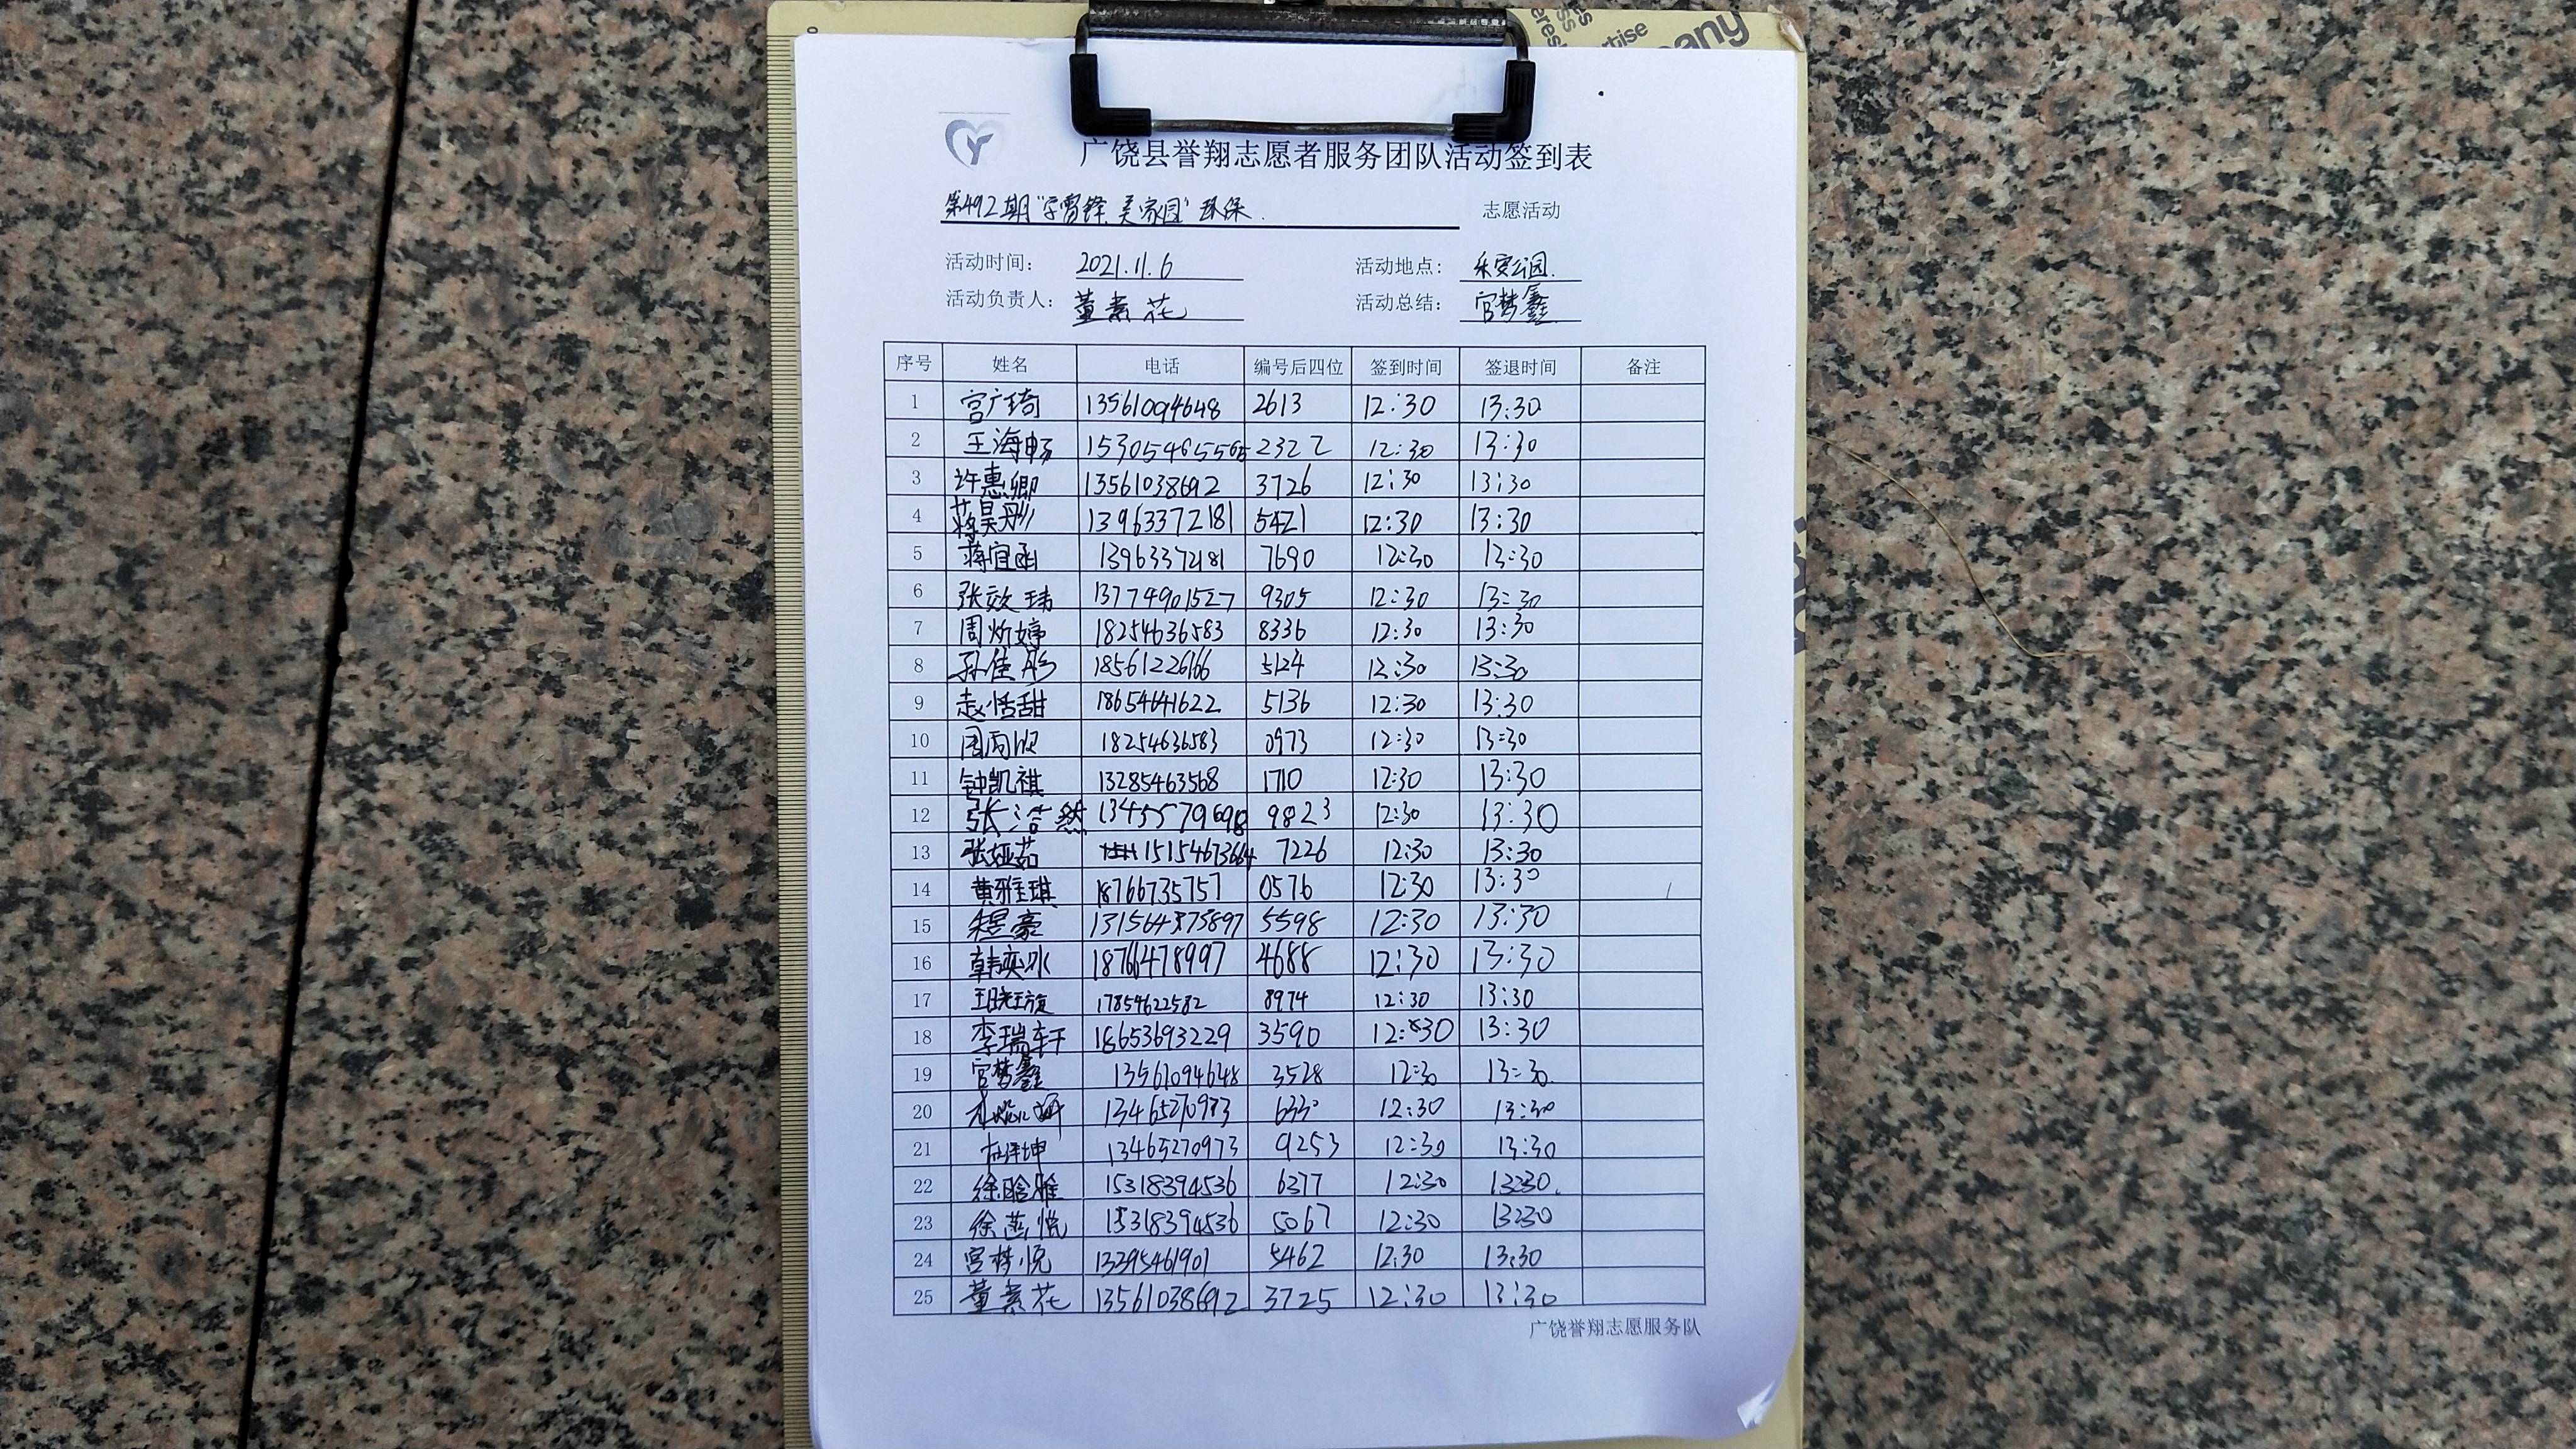 any
rtise
广饶县誉翔志愿者服务团队活动签到表
第492期"学雷锋 美家园"环保 志愿活动
活动时间： 2021.11.6 活动地点： 乐安公园.
活动负责人： 董素花 活动总结： 宫梦鑫
序号 姓名 电话 编号后四位 签到时间 签退时间 备注
1 宫广琦 13561094648 2613 12:30 13:30
2 王海畅 15305465565 2322 12:30 13:30
3 许惠卿 13561038692 3726 12:30 13:30
4 蒋昊彤 13963372181 5421 12:30 13:30
5 蒋宜函 13963372181 7690 12:30 13:30
6 张效玮 13774901527 9305 12:30 13:30
7 周炘婷 18254636583 8336 12:30 13:30
8 孙佳彤 18561226166 5124 12:30 13:30
9 赵恬甜 18654641622 5136 12:30 13:30
10 周丙欣 18254636583 0973 12:30 13:30
11 钟凯祺 13285463568 1710 12:30 13:30
12 张浩然 13455579698 9823 12:30 13:30
13 张娅茹 15154673664 7226 12:30 13:30
14 黄雅琪 18766735757 0576 12:30 13:30
15 豪 5598 12:30 13:30
16 韩奕冰 18766478997 4688 12:30 13:30
17 王晓璇 17854622582 8974 12:30 13:30
18 李瑞轩 18653693229 3590 12:30 13:30
19 宫梦鑫 13561094648 3528 12:30 13:30.
20 13465270973 6330 12:30 13:30
21 坤 13465270973 9253 12:30 13:30
22 徐晗雅 15318394536 6377 12:30 13:30.
23 徐菡悦 15318394536 5067 12:30 13:30
24 宫梦悦 13395461901 5462 12:30 13:30
25 董素花 13561038692 3725 12:30 13:30
广饶誉翔志愿服务队